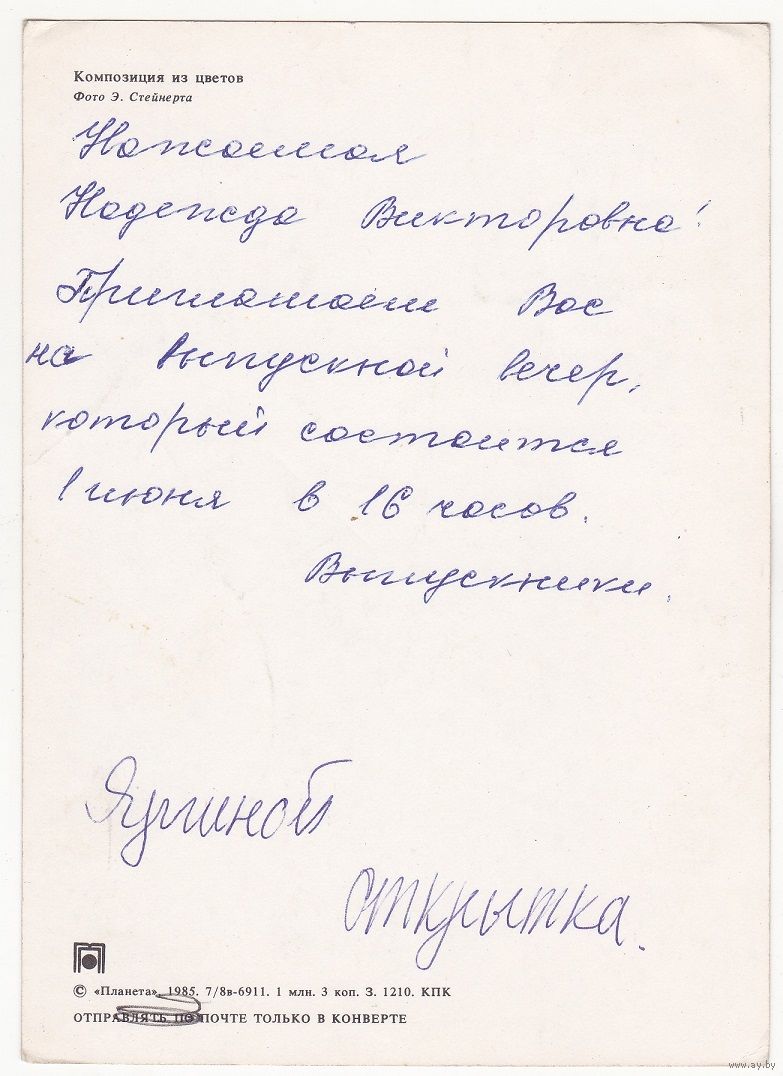 Композиция из цветов
Фото Э. Стейнерта
Надежда Викторовна!
Приглашаем Вас
на выпускной вечер,
который состоится
1 июня в 16 часов.
Выпускники.
открытка.
© «Планета», 1985. 7/8в-6911. 1 млн. 3 коп. З. 1210. КПК
ОТПРАВЛЯТЬ ПО ПОЧТЕ ТОЛЬКО В КОНВЕРТЕ
www.ay.by